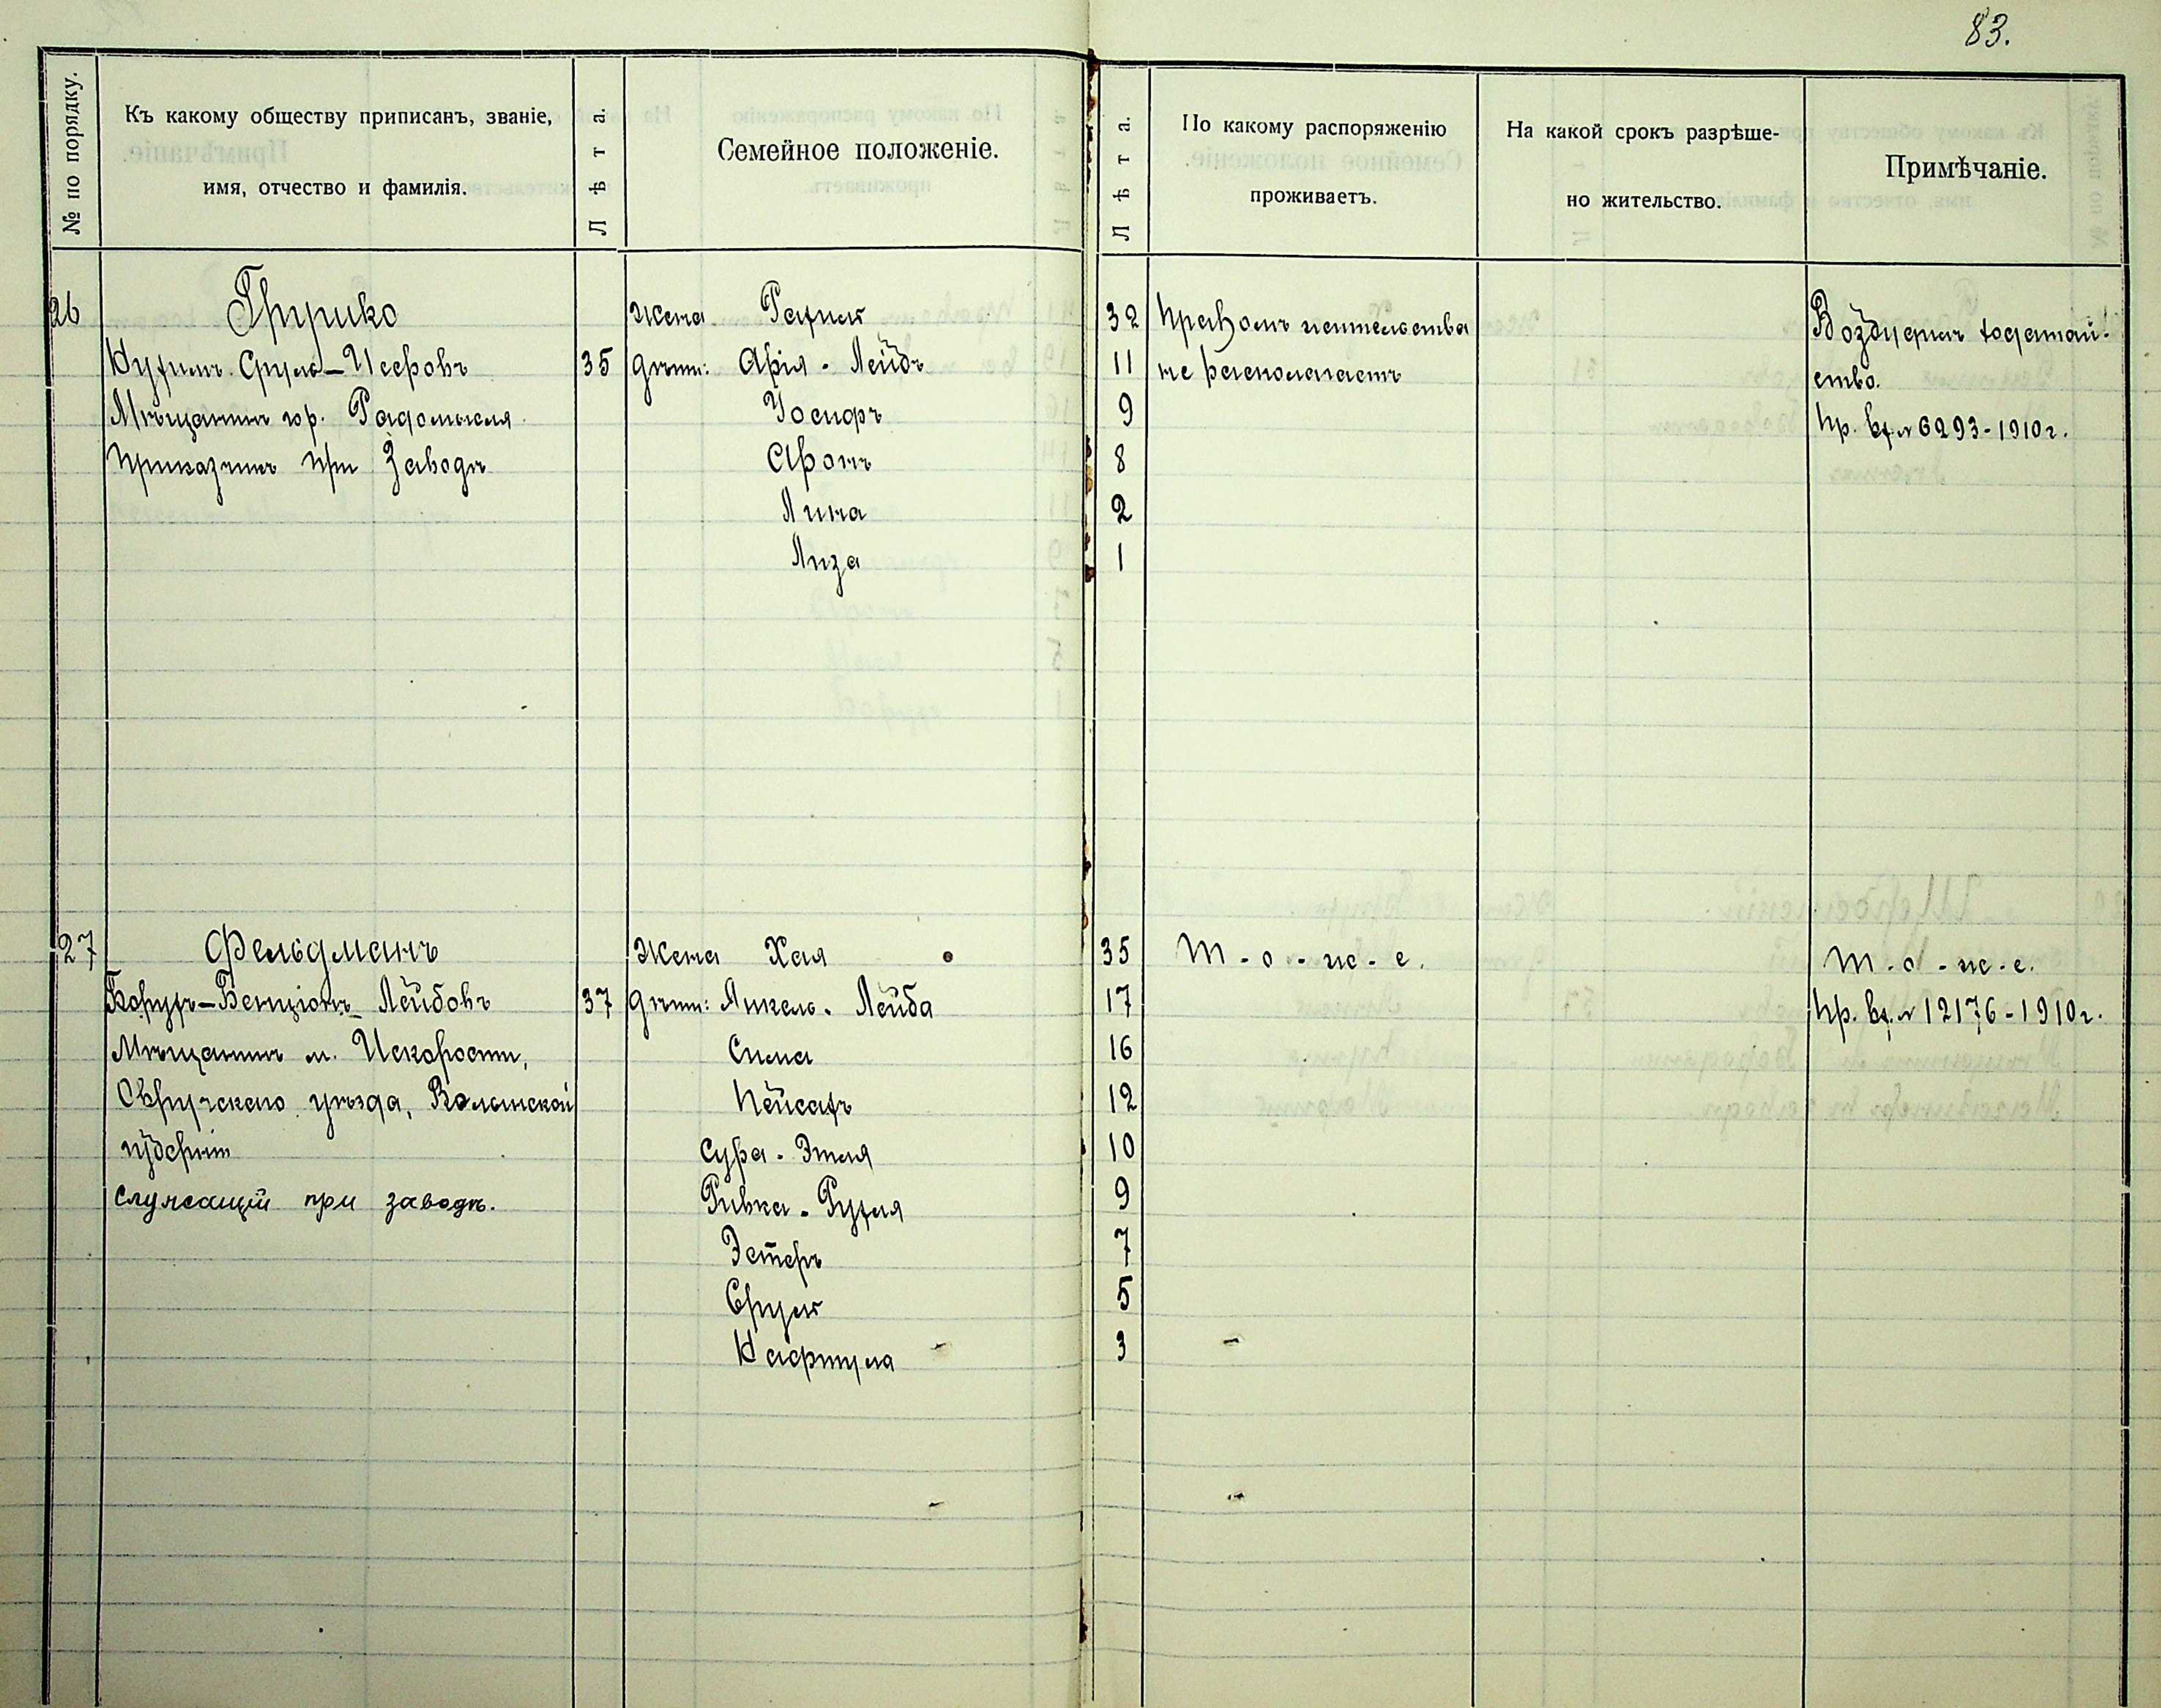 83.
№ по порядку.
Къ какому обществу приписанъ, званіе,
имя, отчество и фамилія.
Лѣта.
Семейное положеніе.
Лѣта.
По какому распоряженію
проживаетъ.
На какой срокъ разрѣше-
но жительство.
Примѣчаніе.
26
35
Мѣщанинъ гор. Радомысля
Приказчикъ при заводѣ
Жена Рахиль 32
дѣти: Арія-Лейбъ 11
Іосифъ 9
Аронъ 8
Лина 2
Лиза 1
Правомъ жительства
не располагаетъ
Возбудилъ ходатай-
ство.
Пр. вх. № 6293-1910 г.
27
Фельдманъ
Борухъ-Бенціонъ Лейбовъ 37
Мѣщанинъ м. Искорости,
Овручскаго уѣзда, Волынской
губерніи
служащій при заводѣ.
Жена Хая 35
дѣти: Янкель-Лейба 17
Сима 16
Пейсахъ 12
Сура-Этля 10
Ривка-Рухля 9
Эстеръ 7
Сруль 5
Нафтула 3
Т-о-ж-е.
Т-о-ж-е.
Пр. вх. № 12176-1910 г.